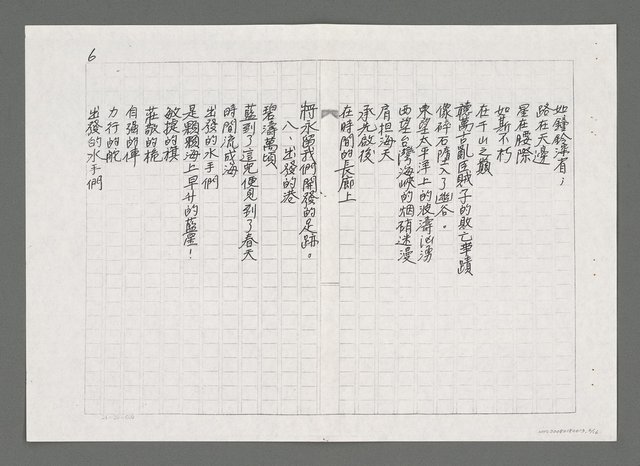 6
如鐘鈴譯眉；
路在天邊
星在腰際
如斯不朽
在千山之巔
讀萬古亂臣賊子的敗亡事蹟
像碎石墮入了幽谷。
東望太平洋上的波濤洶湧
西望台灣海峽的烟硝迷漫
肩担海天
承先啟後
在時間的長廊上
將永留我們開發的足跡。
八、出發的港
碧濤萬頃
藍到了這兒便見到了春天
時間流成海
出發的水手們
是顆顆海上早升的藍星！
敏捷的槓
莊敬的桅
自強的俥
力行的舵
出發的水手們